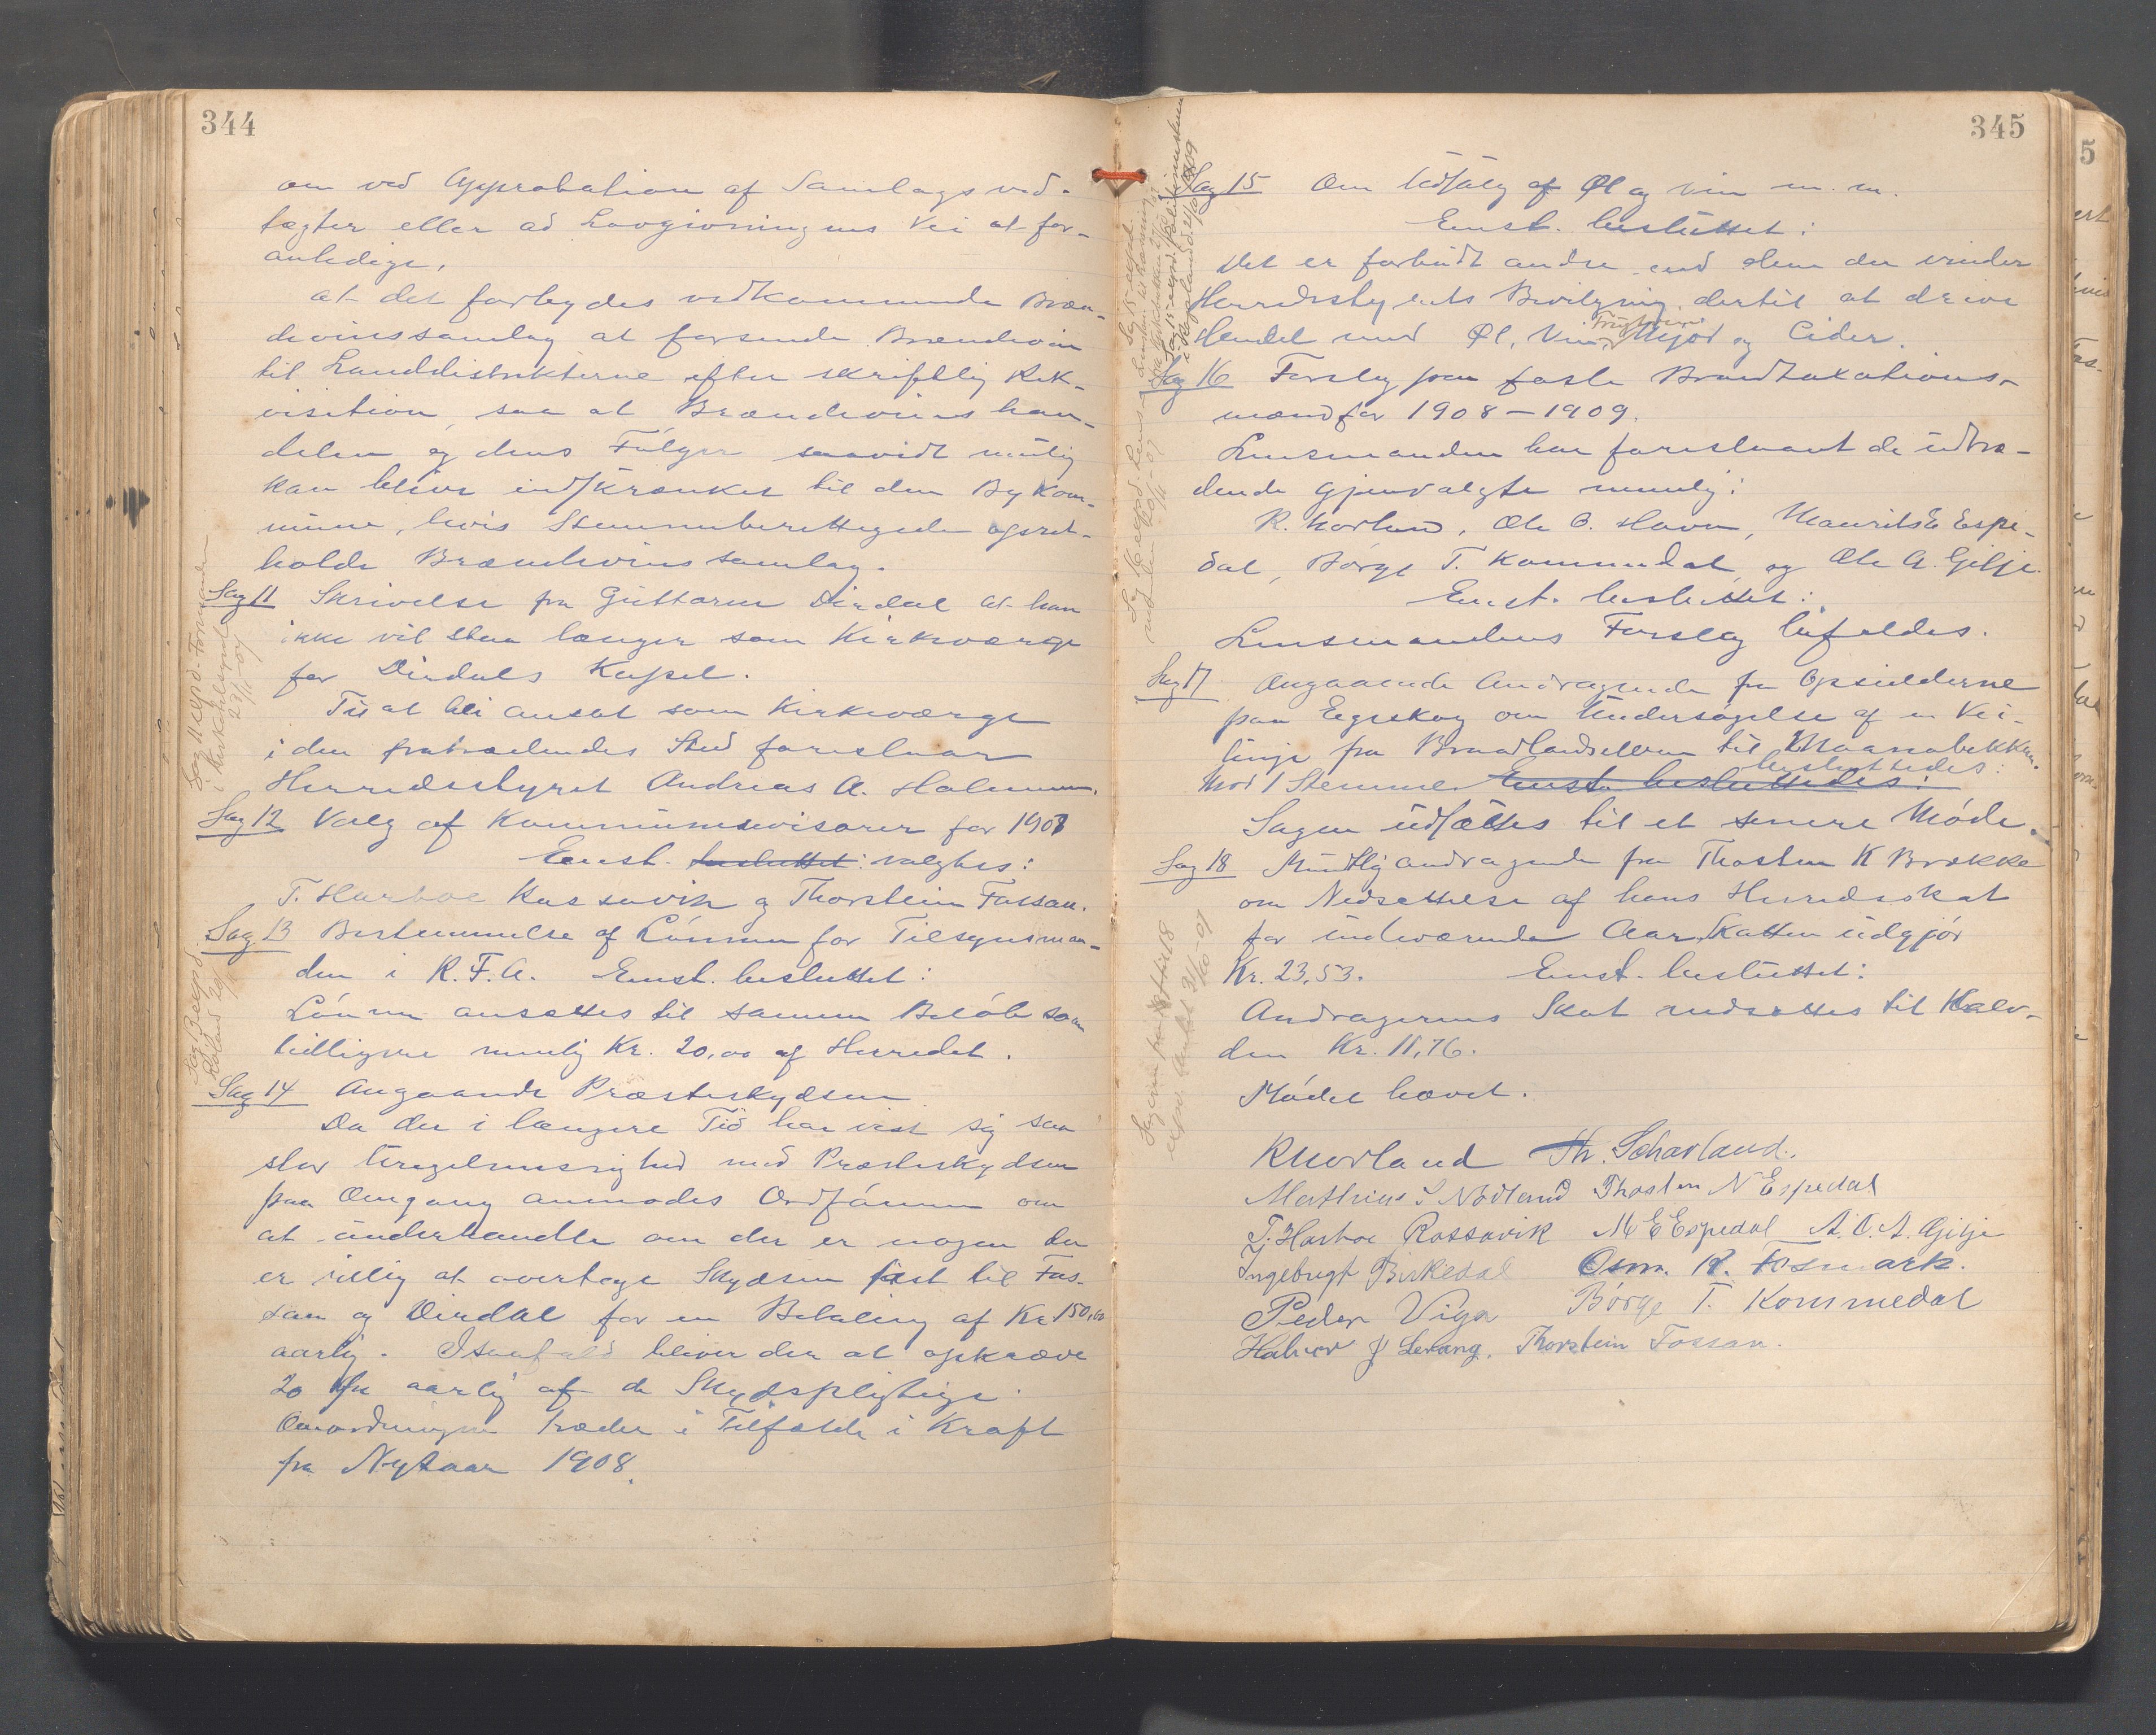 344
om ved Approbation af Samlagsved-
tægter eller ad Lovgivningens Vei at for-
anledige,
at det forbydes vedkommende Bræn-
devinssamlag at forsende Brændevin
til Landdistrikterne efter skriftlig Rek-
visition, saa at Brændevinshan-
delen og dens Følger saavidt mulig
kan blive indskrænket til den Bykom-
mune, hvis Stemmeberettigede opret-
holde Brændevinssamlag.
Sag 11 Skrivelse fra Guttorm Dirdal at han
ikke vil staa længer som Kirkeværge
for Dirdals Kapel.
Til at bli ansat som Kirkeværge
i den fratrædendes Sted foreslaar
Herredsstyret Andreas A. Halmem.
Sag 12 Valg af Kommunerevisorer for 1907
Enst. besluttet: valgtes:
T. Harboe Rossavik og Thorstein Fossan.
Sag 13 Bestemmelse af Lønnen for Tilsynsman-
den i R.F.A. Enst. besluttet:
Lønnen ansættes til samme Beløb som
tidligere nemlig Kr. 20,00 af Herredet.
Sag 14 Angaaende Præsteskydsen
Da der i længere Tid har vist sig saa
stor Uregelmæssighed med Præsteskydsen
paa Omgang anmodes Ordføreren om
at underhandle om der er nogen der
er villig at overtage Skydsen fast til Fos-
san og Dirdal for en Betaling af Kr 150,00
aarlig. Isaafald bliver der at opkræve
20 Øre aarlig af de Skydspligtige.
Omordningen træder i Tilfælde i Kraft
fra Nytaar 1908.
Sag 11 expd. Formanden
i Kirketilsynet
29/11-07
Sag 13 expd.
345
Sag 15 Om Udsalg af Øl og vin m. m.
Enst. besluttet:
Det er forbudt andre end dem der vinder
Herredsstyrets Bevilgning dertil at drive
Handel med Øl, Vin, Frugtvin Mjød og Cider.
Sag 16 Forslag paa faste Brandtaxations-
mænd for 1908-1909.
Lensmanden har foreslaaet de udtræ-
dende gjenvalgte nemlig:
R. Norland, Ole O. Havn, Maurits E Espe-
dal, Børge T. Kommedal og Ole A. Gilje.
Enst. besluttet:
Lensmandens Forslag bifaldes.
Sag 17 Angaaende Andragende fra Opsidderne
paa Egeskog om Undersøgelse af en Vei-
linje fra Braadlandselven til Maanabekken.
Mod 1 Stemme Enst. besluttedes: besluttedes:
Sagen udsættes til et senere Møde.
Sag 18 Mundtlig andragende fra Thosten K Brække
om Nedsættelse af hans Herredsskat
for indeværende Aar. Skatten udgjør
Kr. 23,53. Enst. besluttet:
Andragerens Skat nedsættes til Halv-
den Kr. 11,76.
Mødet hævet.
R Norland Th. Scharland.
Mathias S Nådland Thosten N Espedal
T. Harboe Rossavik M E Espedal A. O. A. Gilje
Ingebrigt Birkedal Osm. R. Fosmark.
Peder Viga Børge T. Kommedal
Halvor J Levang. Thorstein Fossan.
5